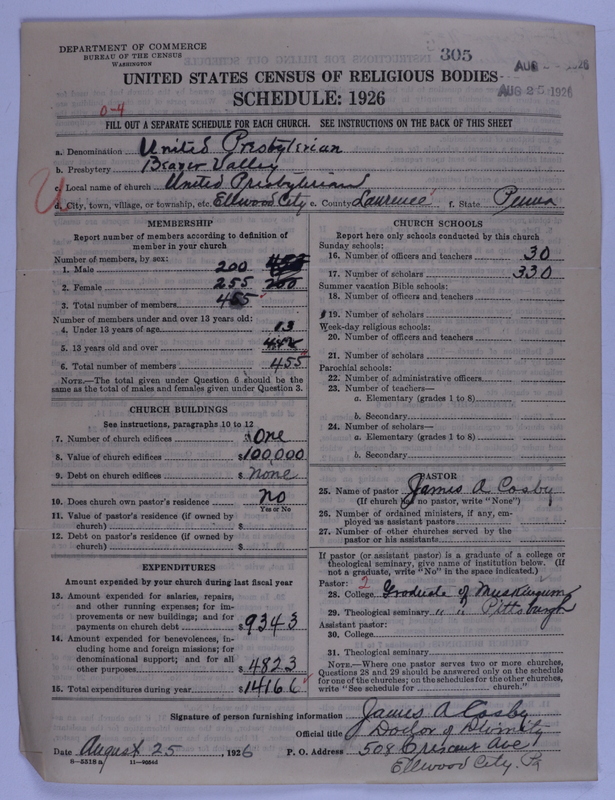 DEPARTMENT OF COMMERCE
BUREAU OF THE CENSUS
WASHINGTON
305
AUG 25 1926
UNITED STATES CENSUS OF RELIGIOUS BODIES
SCHEDULE: 1926
0-4
FILL OUT A SEPARATE SCHEDULE FOR EACH CHURCH. SEE INSTRUCTIONS ON THE BACK OF THIS SHEET
a. Denomination United Presbyterian
b. Presbytery Beaver Valley
c. Local name of church United Presbyterian
d. City, town, village, or township, etc. Ellwood City e. County Laurence f. State Penna
MEMBERSHIP
Report number of members according to definition of
member in your church
Number of members, by sex:
1. Male 200
2. Female 255 200
3. Total number of members 455
Number of members under and over 13 years old:
4. Under 13 years of age 13
5. 13 years old and over 442
6. Total number of members 455
NOTE.—The total given under Question 6 should be the
same as the total of males and females given under Question 3.
CHURCH BUILDINGS
See instructions, paragraphs 10 to 12
7. Number of church edifices One
8. Value of church edifices $100,000
9. Debt on church edifices $ none
10. Does church own pastor's residence no
Yes or No
11. Value of pastor's residence (if owned by
church) $
12. Debt on pastor's residence (if owned by
church) $
EXPENDITURES
Amount expended by your church during last fiscal year
13. Amount expended for salaries, repairs,
and other running expenses; for im-
provements or new buildings; and for
payments on church debt $9343
14. Amount expended for benevolences, in-
cluding home and foreign missions; for
denominational support; and for all
other purposes $4823
15. Total expenditures during year $14166
CHURCH SCHOOLS
Report here only schools conducted by this church
Sunday schools:
16. Number of officers and teachers 30
17. Number of scholars 330
Summer vacation Bible schools:
18. Number of officers and teachers
19. Number of scholars
Week-day religious schools:
20. Number of officers and teachers
21. Number of scholars
Parochial schools:
22. Number of administrative officers
23. Number of teachers—
a. Elementary (grades 1 to 8)
b. Secondary
24. Number of scholars—
a. Elementary (grades 1 to 8)
b. Secondary
PASTOR
25. Name of pastor James A Cosby
(If church has no pastor, write "None")
26. Number of ordained ministers, if any, em-
ployed as assistant pastors
27. Number of other churches served by the
pastor or his assistants
If pastor (or assistant pastor) is a graduate of a college or
theological seminary, give name of institution below. (If
not a graduate, write "No" in the space indicated.)
Pastor: 2
28. College Graduate of Muskingum
29. Theological seminary " " Pittsburgh
Assistant pastor:
30. College
31. Theological seminary
NOTE.—Where one pastor serves two or more churches,
Questions 28 and 29 should be answered only on the schedule
for one of the churches; on the schedules for the other churches,
write "See schedule for church."
Signature of person furnishing information James A Cosby
Official title Doctor of Divinity
Date August 25, 1926 P. O. Address 508 Crescent Ave
8-5518a
Ellwood City, Pa